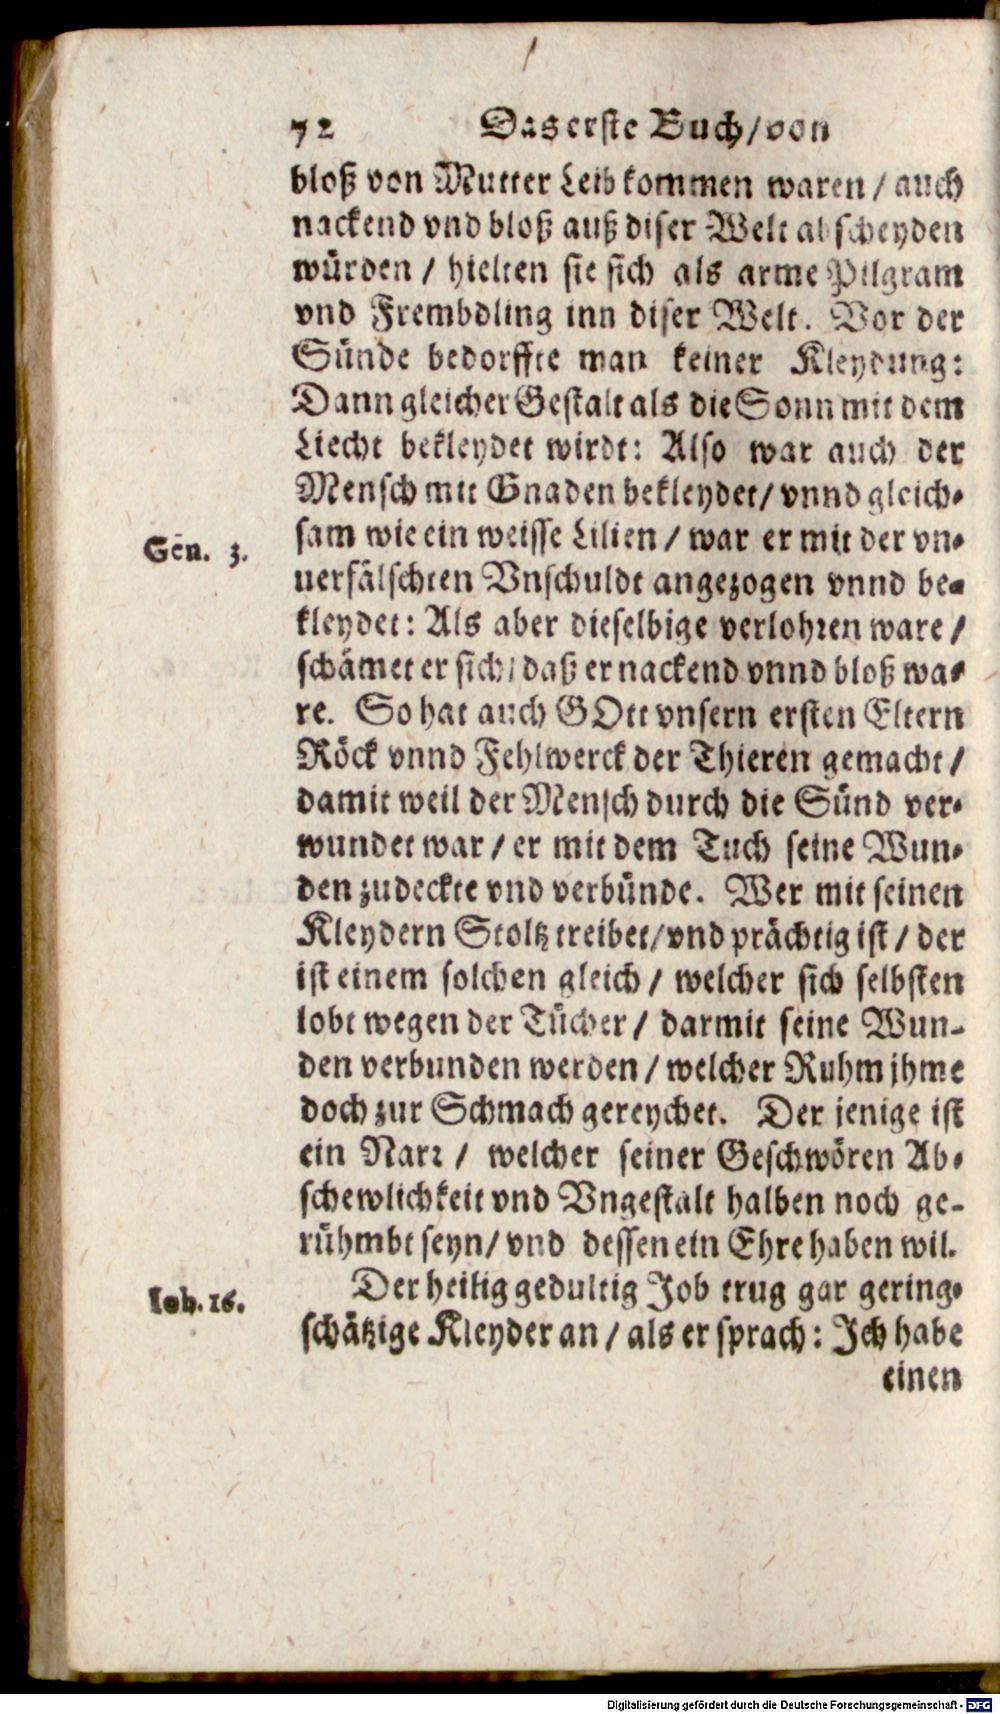 72 Das erste Buch/von
bloß von Mutter Leib kommen waren / auch
nackend vnd bloß auß diser Welt abscheyden
würden / hielten sie sich als arme Pilgram
vnd Frembdling inn diser Welt. Vor der
Sünde bedorffte man keiner Kleydung:
Dann gleicher Gestalt als die Sonn mit dem
Liecht bekleydet wirdt: Also war auch der
Mensch mit Gnaden bekleydet/ vnnd gleich-
sam wie ein weisse Lilien / war er mit der vn-
Gen. 3.
uerfälschten Vnschuldt angezogen vnnd be-
kleydet: Als aber dieselbige verlohren ware /
schämet er sich/ daß er nackend vnnd bloß wa-
re. So hat auch GOtt vnsern ersten Eltern
Röck vnnd Fehlwerck der Thieren gemacht /
damit weil der Mensch durch die Sünd ver-
wundet war / er mit dem Tuch seine Wun-
den zudeckte vnd verbünde. Wer mit seinen
Kleydern Stoltz treibet/vnd prächtig ist / der
ist einem solchen gleich / welcher sich selbsten
lobt wegen der Tücher / darmit seine Wun-
den verbunden werden / welcher Ruhm jhme
doch zur Schmach gereychet. Der jenige ist
ein Narr / welcher seiner Geschwören Ab-
schewlichkeit vnd Vngestalt halben noch ge-
rühmbt seyn/ vnd dessen ein Ehre haben wil.
Der heilig gedultig Job trug gar gering-
Iob. 16.
schätzige Kleyder an / als er sprach: Jch habe
einen
Digitalisierung gefördert durch die Deutsche Forschungsgemeinschaft - DFG